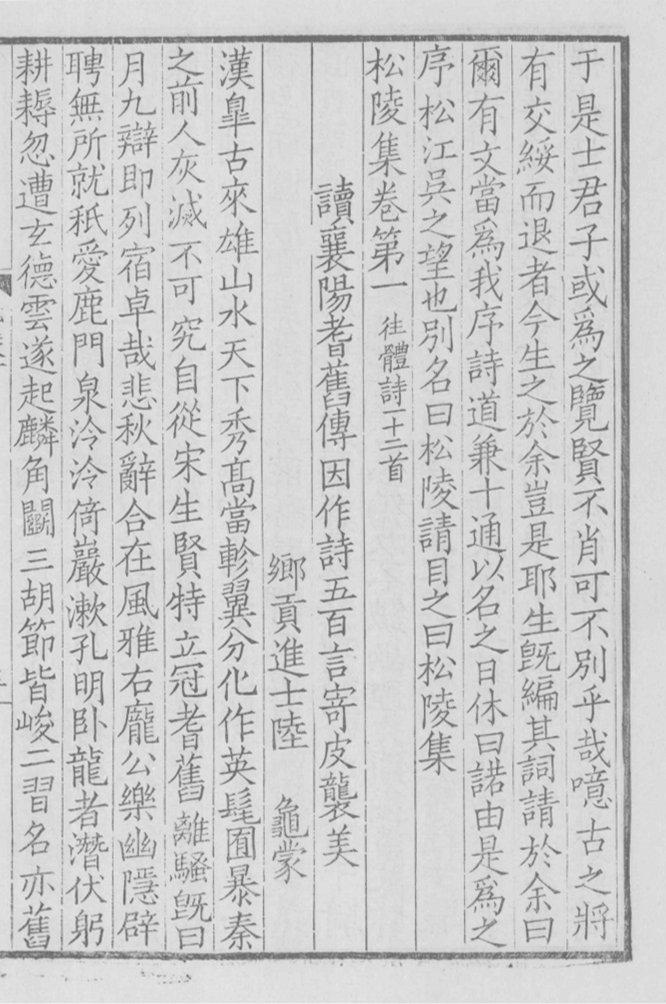 于是士君子或爲之覽賢不肖可不別乎哉噫古之將
有交綏而退者今生之於余豈是耶生旣編其詞請於余曰
爾有文當爲我序詩道兼十通以名之日休曰諾由是爲之
序松江吳之望也別名曰松陵請目之曰松陵集
松陵集卷第一 徃體詩一十二首
讀襄陽耆舊傳因作詩五百言寄皮襲美
鄉貢進士陸 龜蒙
漢臯古來雄山水天下秀髙當軫翼分化作英髦囿暴秦
之前人灰滅不可究自從宋生賢特立冠耆舊離騷旣日
月九辯即列宿卓哉悲秋辭合在風雅右龐公樂幽隱辟
聘無所就秖愛鹿門泉泠泠倚巖漱孔明卧龍者潛伏躬
耕耨忽遭玄德雲遂起麟角鬬三胡節皆峻二習名亦舊